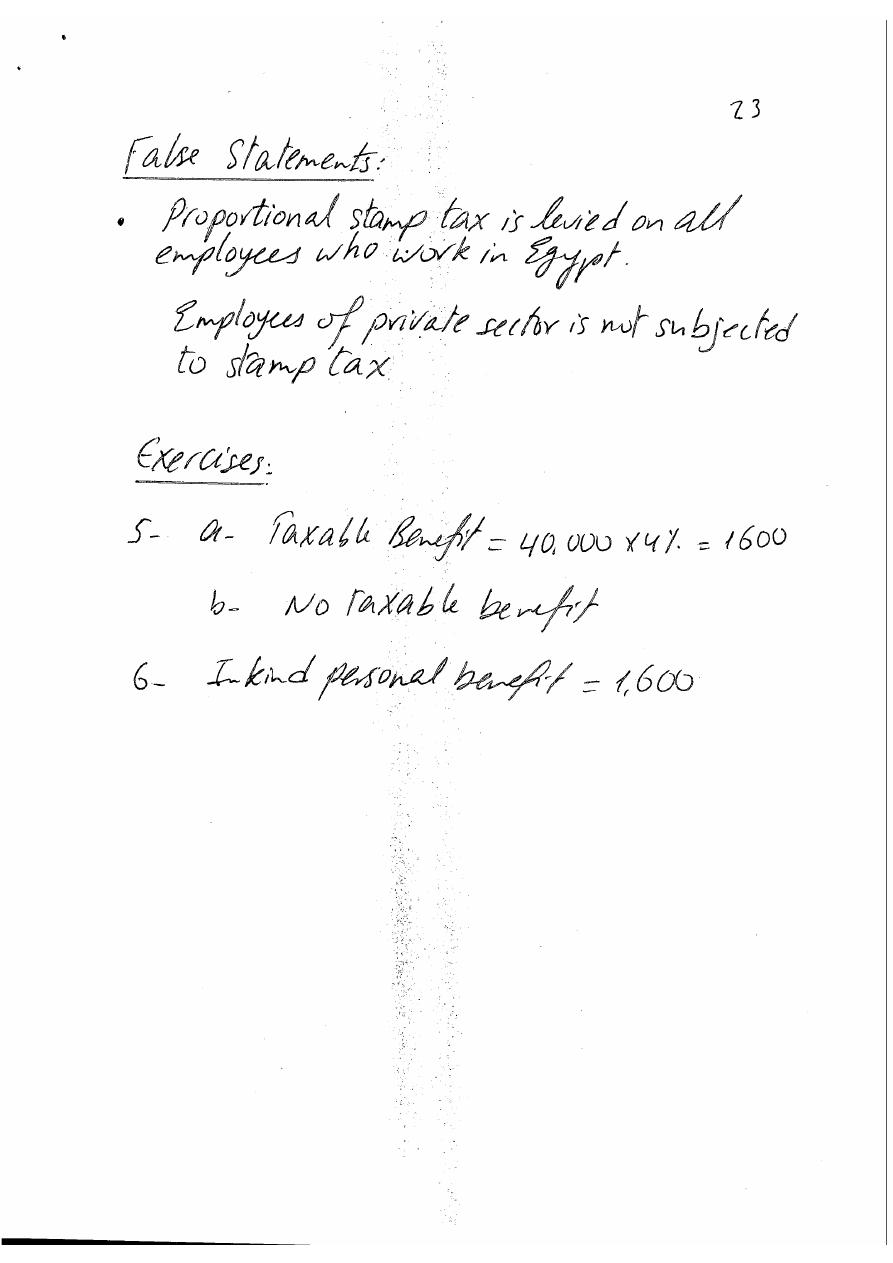 23
False Statements:
• Proportional stamp tax is levied on all
employees who work in Egypt.
Employees of private sector is not subjected
to stamp tax
Exercises:
5- a- Taxable Benefit = 40,000 x 4% = 1600
b- No Taxable benefit
6- In kind personal benefit = 1,600